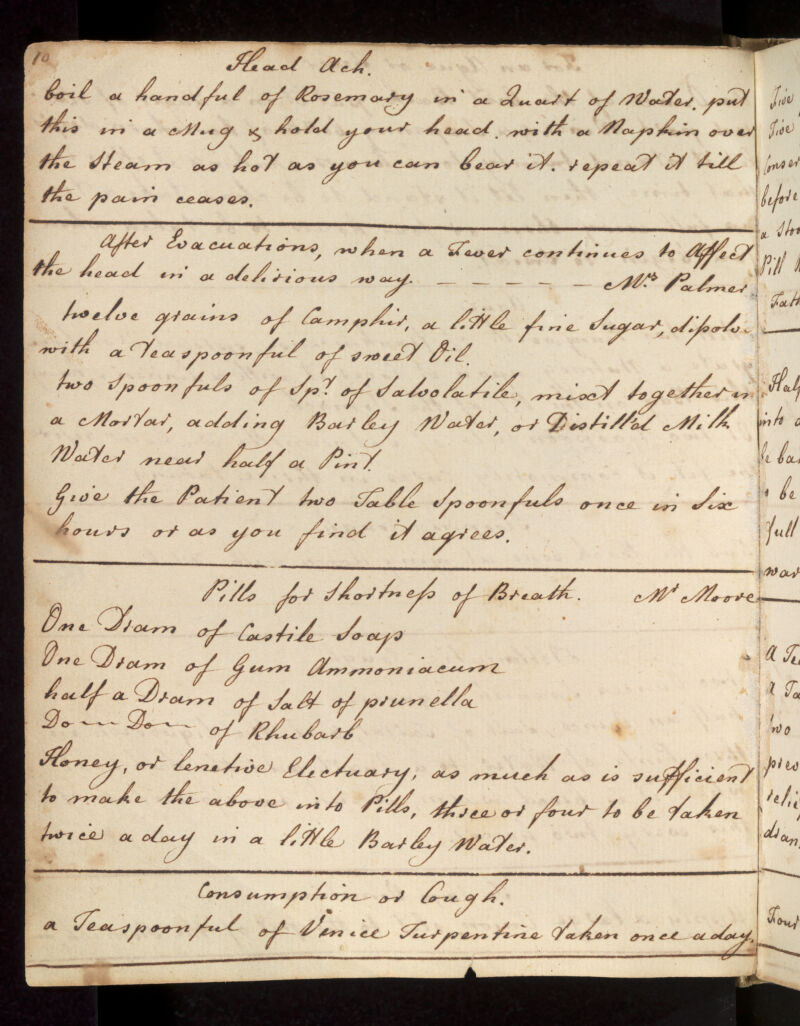 10
Head Ach.
boil a handful of Rosemary in a Quart of Water. put
this in a Mug & hold your head. with a Napkin over
the Steam as hot as you can bear it. repeat it till
the pain ceases.
After Evacuations, when a Fever continues to Affect
the head in a delirious way. — — — — — — Mrs Palmer
twelve grains of Camphir, a little fine Sugar, disolv
with a teaspoonful of sweet Oil.
two Spoonfuls of Spt. of Salvolatile, mixt together in
a Mortar, adding Barley Water, or Distill'd Milk
Water near half a Pint.
Give the Patient two Table Spoonfuls once in Six
hours or as you find it agrees.
Pills for Shortneſs of Breath. Mr Moore
One Dram of Castile Soap
One Dram of Gum Ammoniacum
half a Dram of Salt of prunella
Do — Do — of Rhubarb
Honey, or lenetive Electuary, as much as is sufficient
to make the above into Pills, three or four to be taken
twice a day in a little Barley Water.
Consumption or Cough.
a Teaspoonful of Venice Turpentine taken once a day.
Five
Five
Conser
before
a Stoo
Pill
Half
into
be
full
war
A Te
a Ta
two
prev
relie
dram
Four